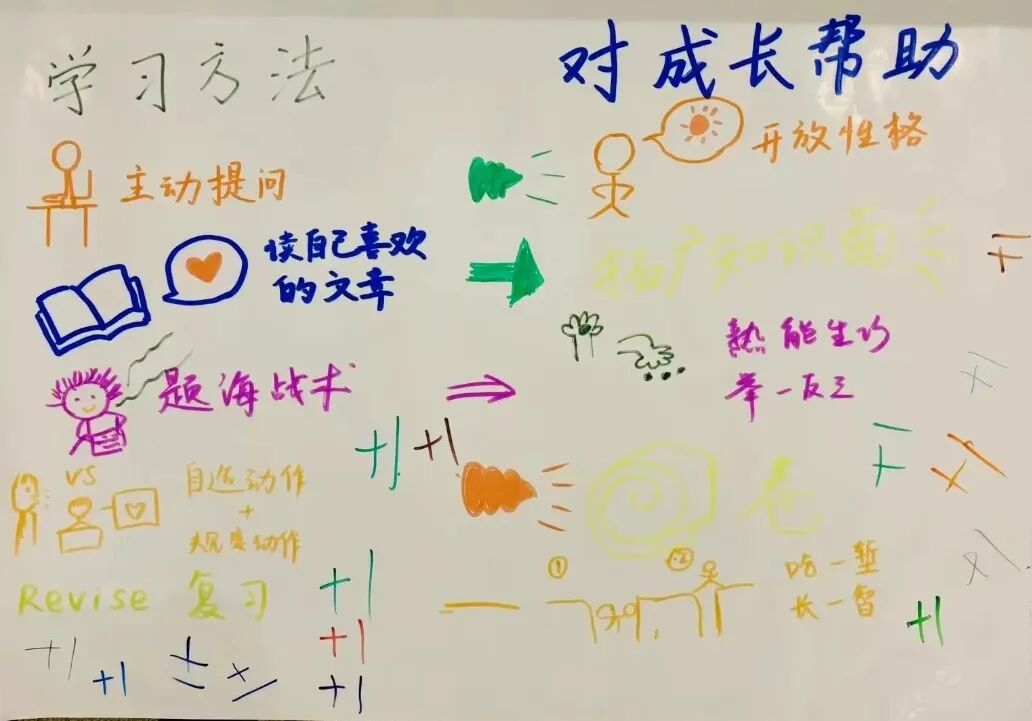 学习方法
对成长帮助
主动提问
开放性格
读自己喜欢
的文章
拓广知识面
题海战术
熟能生巧
举一反三
+1
+1
VS
自选动作
+
规定动作
卷
Revise 复习
①
②
吃一堑
长一智
+1
+1
+1
+1
+1
+1
+1
+1
+1
+1
+1
+1
+1